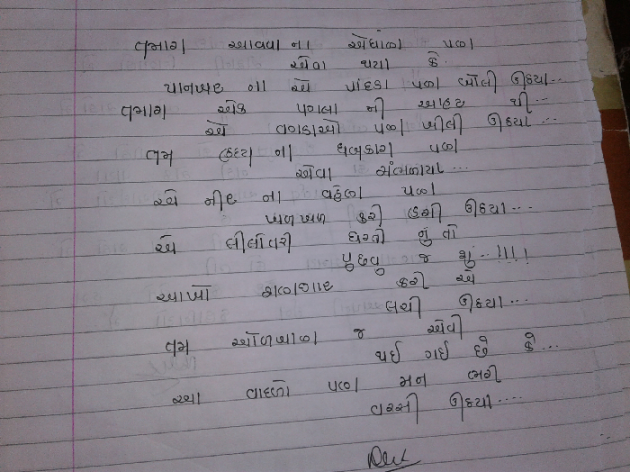 તમારા આવવા ના એંધાળા પળા
એવા થયા કે
પાનખર ના એ પાંદડા પળ બોલી ઉઠયા...
તમારા એક પગલા ની આહટ થી...
એ વગડાઓ પળા ખીલી ઉઠયા...
તમ હ્રદય ના ધબકારા પળા
એવા સંભળાયા...
એ નદિ ના વહેળા પળા
ખળખળ કરી હસી ઉઠયા...
એ લીલીતરી ધરતી નું તો
પુછવુ જ શું...!!!!
આખો શળગાર કરી એ
લચી ઉઠયા...
તમ ઓળખાળ જ એવી
થઈ ગઈ છે કે...
આ વાદળો પળા મન ભરી
વરસી ઉઠયા....